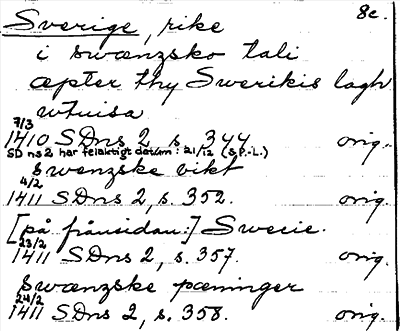 Sverige, rike 8c.
i swænzsko tali
æpter thy Swerikis lagh
wtuisa
7/3
1410 SDns 2, s. 344 orig.
SD ns 2 har felaktigt datum: 21/12 (S.P.-L.)
swenzske vikt
4/2
1411 SDns 2, s. 352. orig.
[på frånsidan:] Swerie.
23/2
1411 SDns 2, s. 357. orig.
swænzske pæninger
24/2
1411 SDns 2, s. 358. orig.